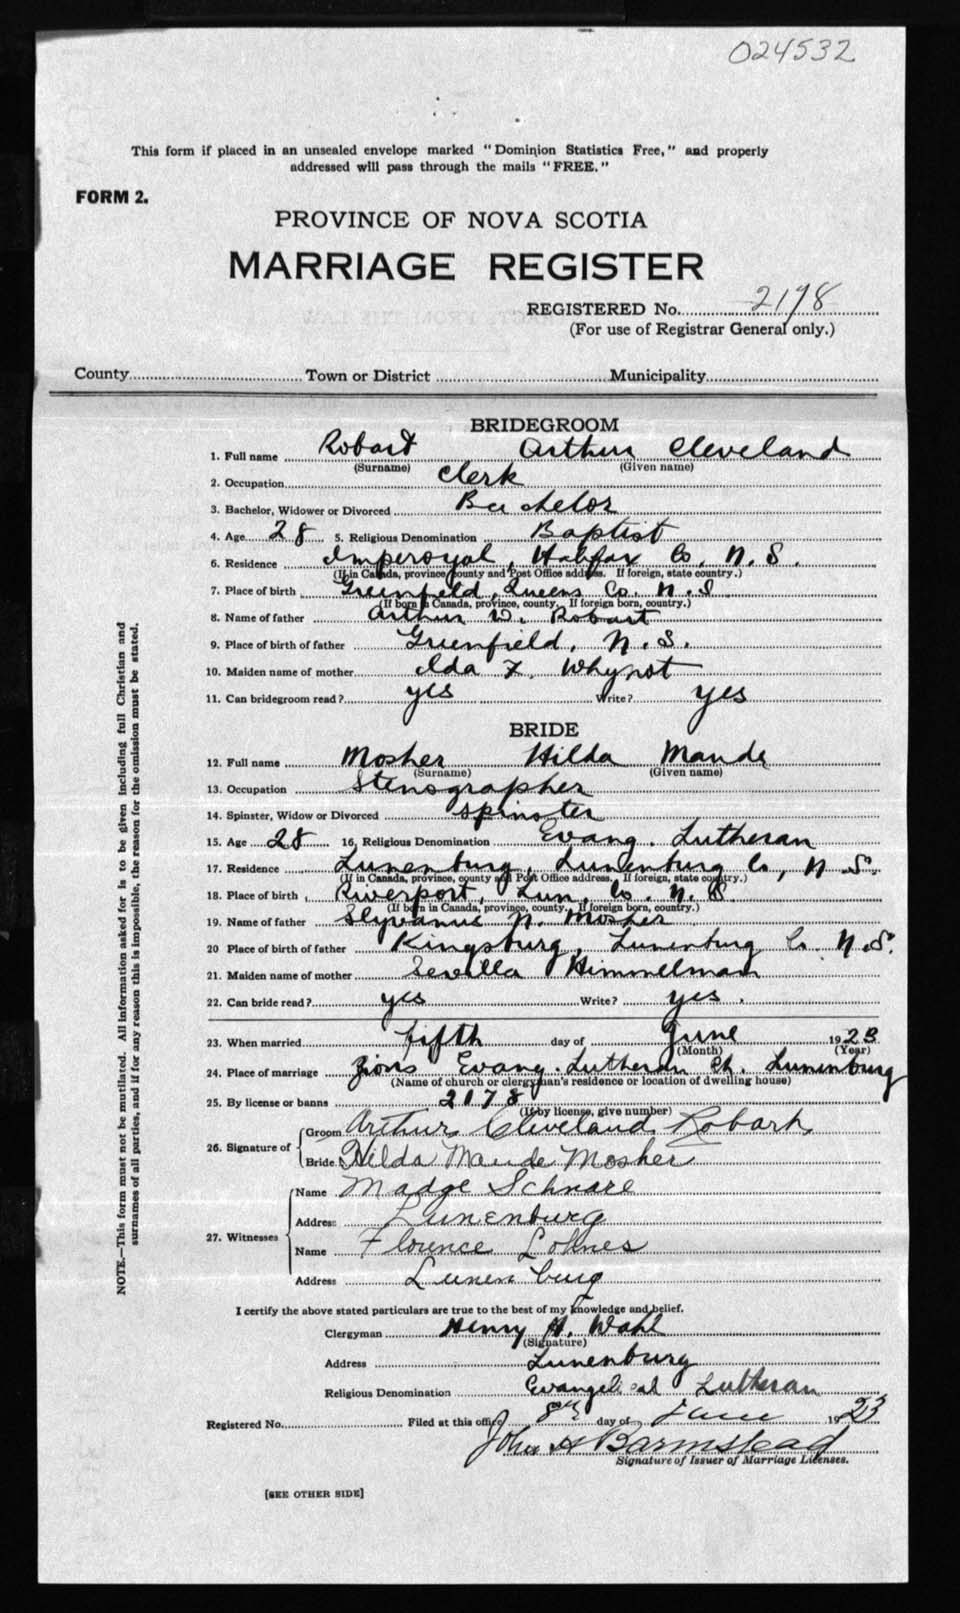 024532
This form if placed in an unsealed envelope marked "Dominion Statistics Free," and properly
addressed will pass through the mails "FREE."
FORM 2.
PROVINCE OF NOVA SCOTIA
MARRIAGE REGISTER
REGISTERED No. 2198
(For use of Registrar General only.)
County Town or District Municipality
BRIDEGROOM
1. Full name Robart Arthur Cleveland
(Surname) (Given name)
2. Occupation Clerk
3. Bachelor, Widower or Divorced Bachelor
4. Age 28 5. Religious Denomination Baptist
6. Residence Imperoyal, Halifax Co. N. S.
(If in Canada, province, county and Post Office address. If foreign, state country.)
7. Place of birth Greenfield, Queens Co. N. S.
(If born in Canada, province, county. If foreign born, country.)
8. Name of father Arthur W. Robart
9. Place of birth of father Greenfield, N. S.
10. Maiden name of mother Ida F. Whynot
11. Can bridegroom read? yes Write? yes
BRIDE
12. Full name Mosher Hilda Maude
(Surname) (Given name)
13. Occupation Stenographer
14. Spinster, Widow or Divorced Spinster
15. Age 28 16. Religious Denomination Evang. Lutheran
17. Residence Lunenburg, Lunenburg Co, N. S.
(If in Canada, province, county and Post Office address. If foreign, state country.)
18. Place of birth Riverport, Lun. Co. N. S.
(If born in Canada, province, county. If foreign born, country.)
19. Name of father Slyvanus N. Mosher
20 Place of birth of father Kingsburg, Lunenburg Co. N. S.
21. Maiden name of mother Sevilla Himmelman
22. Can bride read? yes Write? yes.
23. When married fifth day of June 1923
(Month) (Year)
24. Place of marriage Zions Evang. Lutheran Ch. Lunenburg
(Name of church or clergyman's residence or location of dwelling house)
25. By license or banns 2178
(If by license, give number)
26. Signature of Groom Arthur Cleveland Robart
Bride Hilda Maude Mosher
27. Witnesses Name Madge Schnare
Address Lunenburg
Name Florence Lohnes
Address Lunenburg
I certify the above stated particulars are true to the best of my knowledge and belief.
Clergyman Henry A. Wahl
(Signature)
Address Lunenburg
Religious Denomination Evangelical Lutheran
Registered No. Filed at this office 8th day of June 1923
John H Barmstead
Signature of Issuer of Marriage Licenses.
[SEE OTHER SIDE]
NOTE.—This form must not be mutilated. All information asked for is to be given including full Christian and
surnames of all parties, and if for any reason this is impossible, the reason for the omission must be stated.